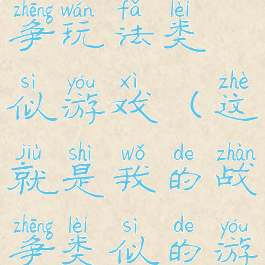 zhēng wán fǎ lèi
争玩法类
sì yóu xì zhè
似游戏（这
jiù shì wǒ de zhàn
就是我的战
zhēng lèi sì de yóu
争类似的游